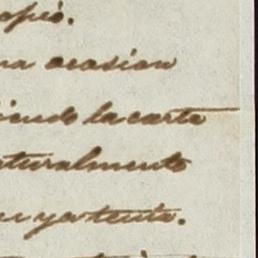 copió.
na ocasion
iendo la carta
aturalmente
ya tenia.